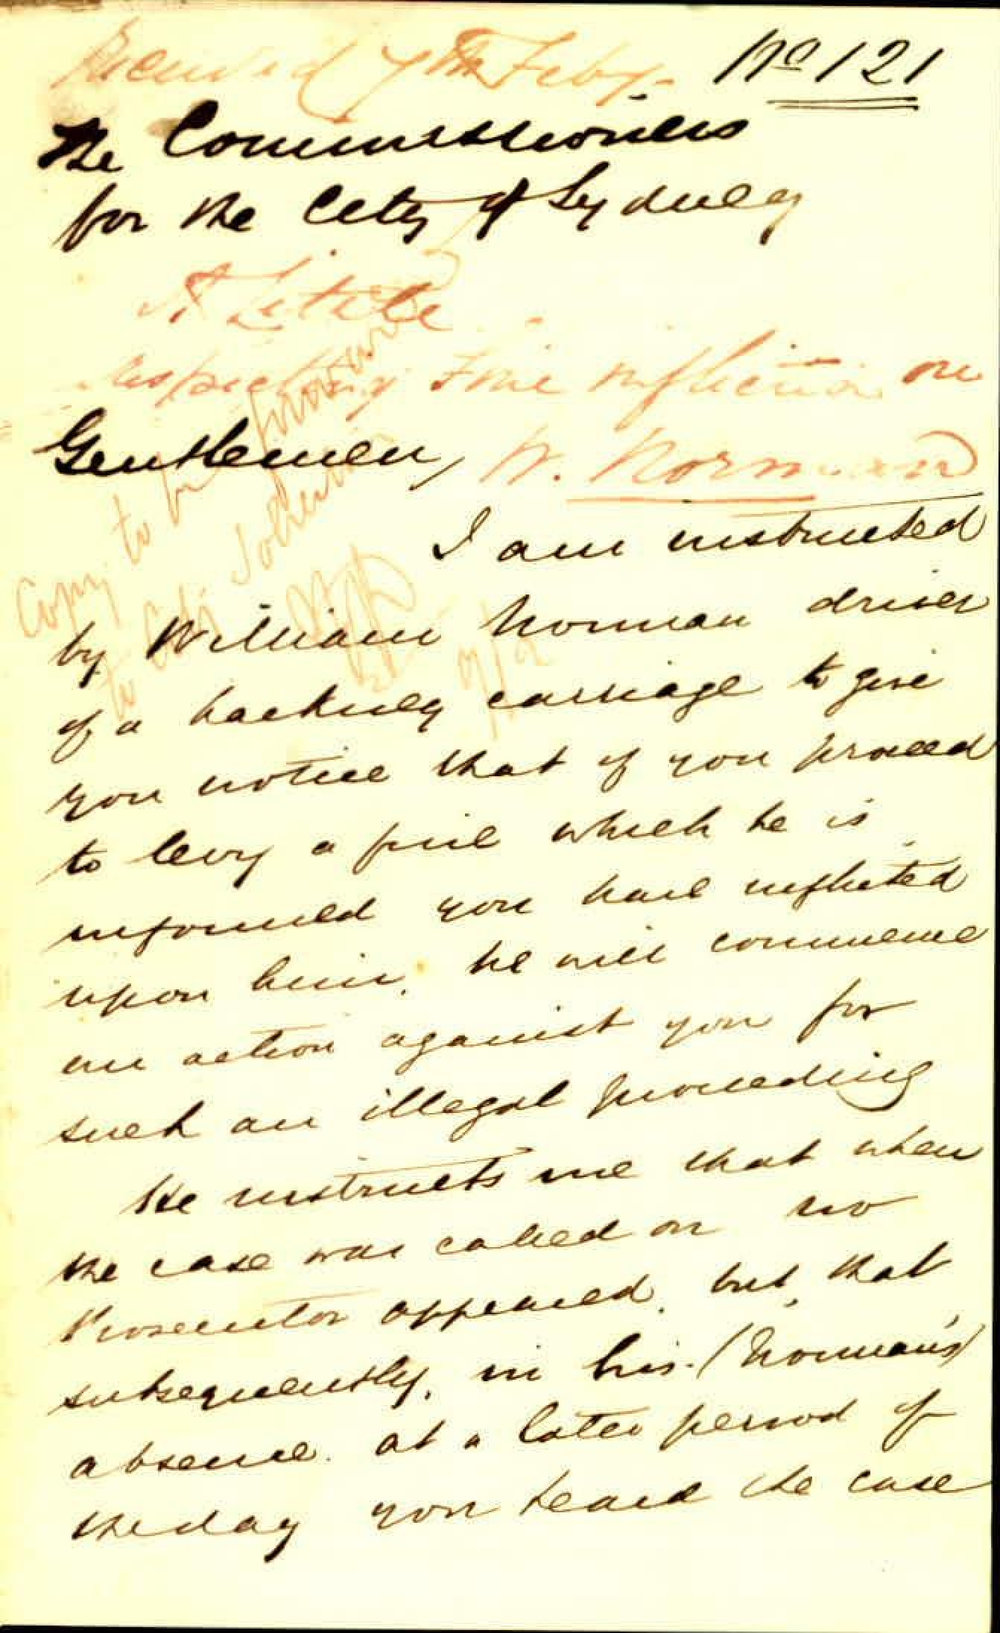 Received 7th Feby. No 121
The Commissioners
for the City of Sydney
Little
respecting Fine infliction on
Gentlemen, W. Norman
Copy to be forwarded
to City Solicitor
7/2
I am instructed
by William Norman driver
of a hackney carriage to give
you notice that if you proceed
to levy a fine which he is
informed you have inflicted
upon him, he will commence
an action against you for
such an illegal proceeding
He instructs me that when
the case was called on no
Prosecutor appeared, but, that
subsequently, in his (Norman's)
absence at a later period of
the day you heard the case